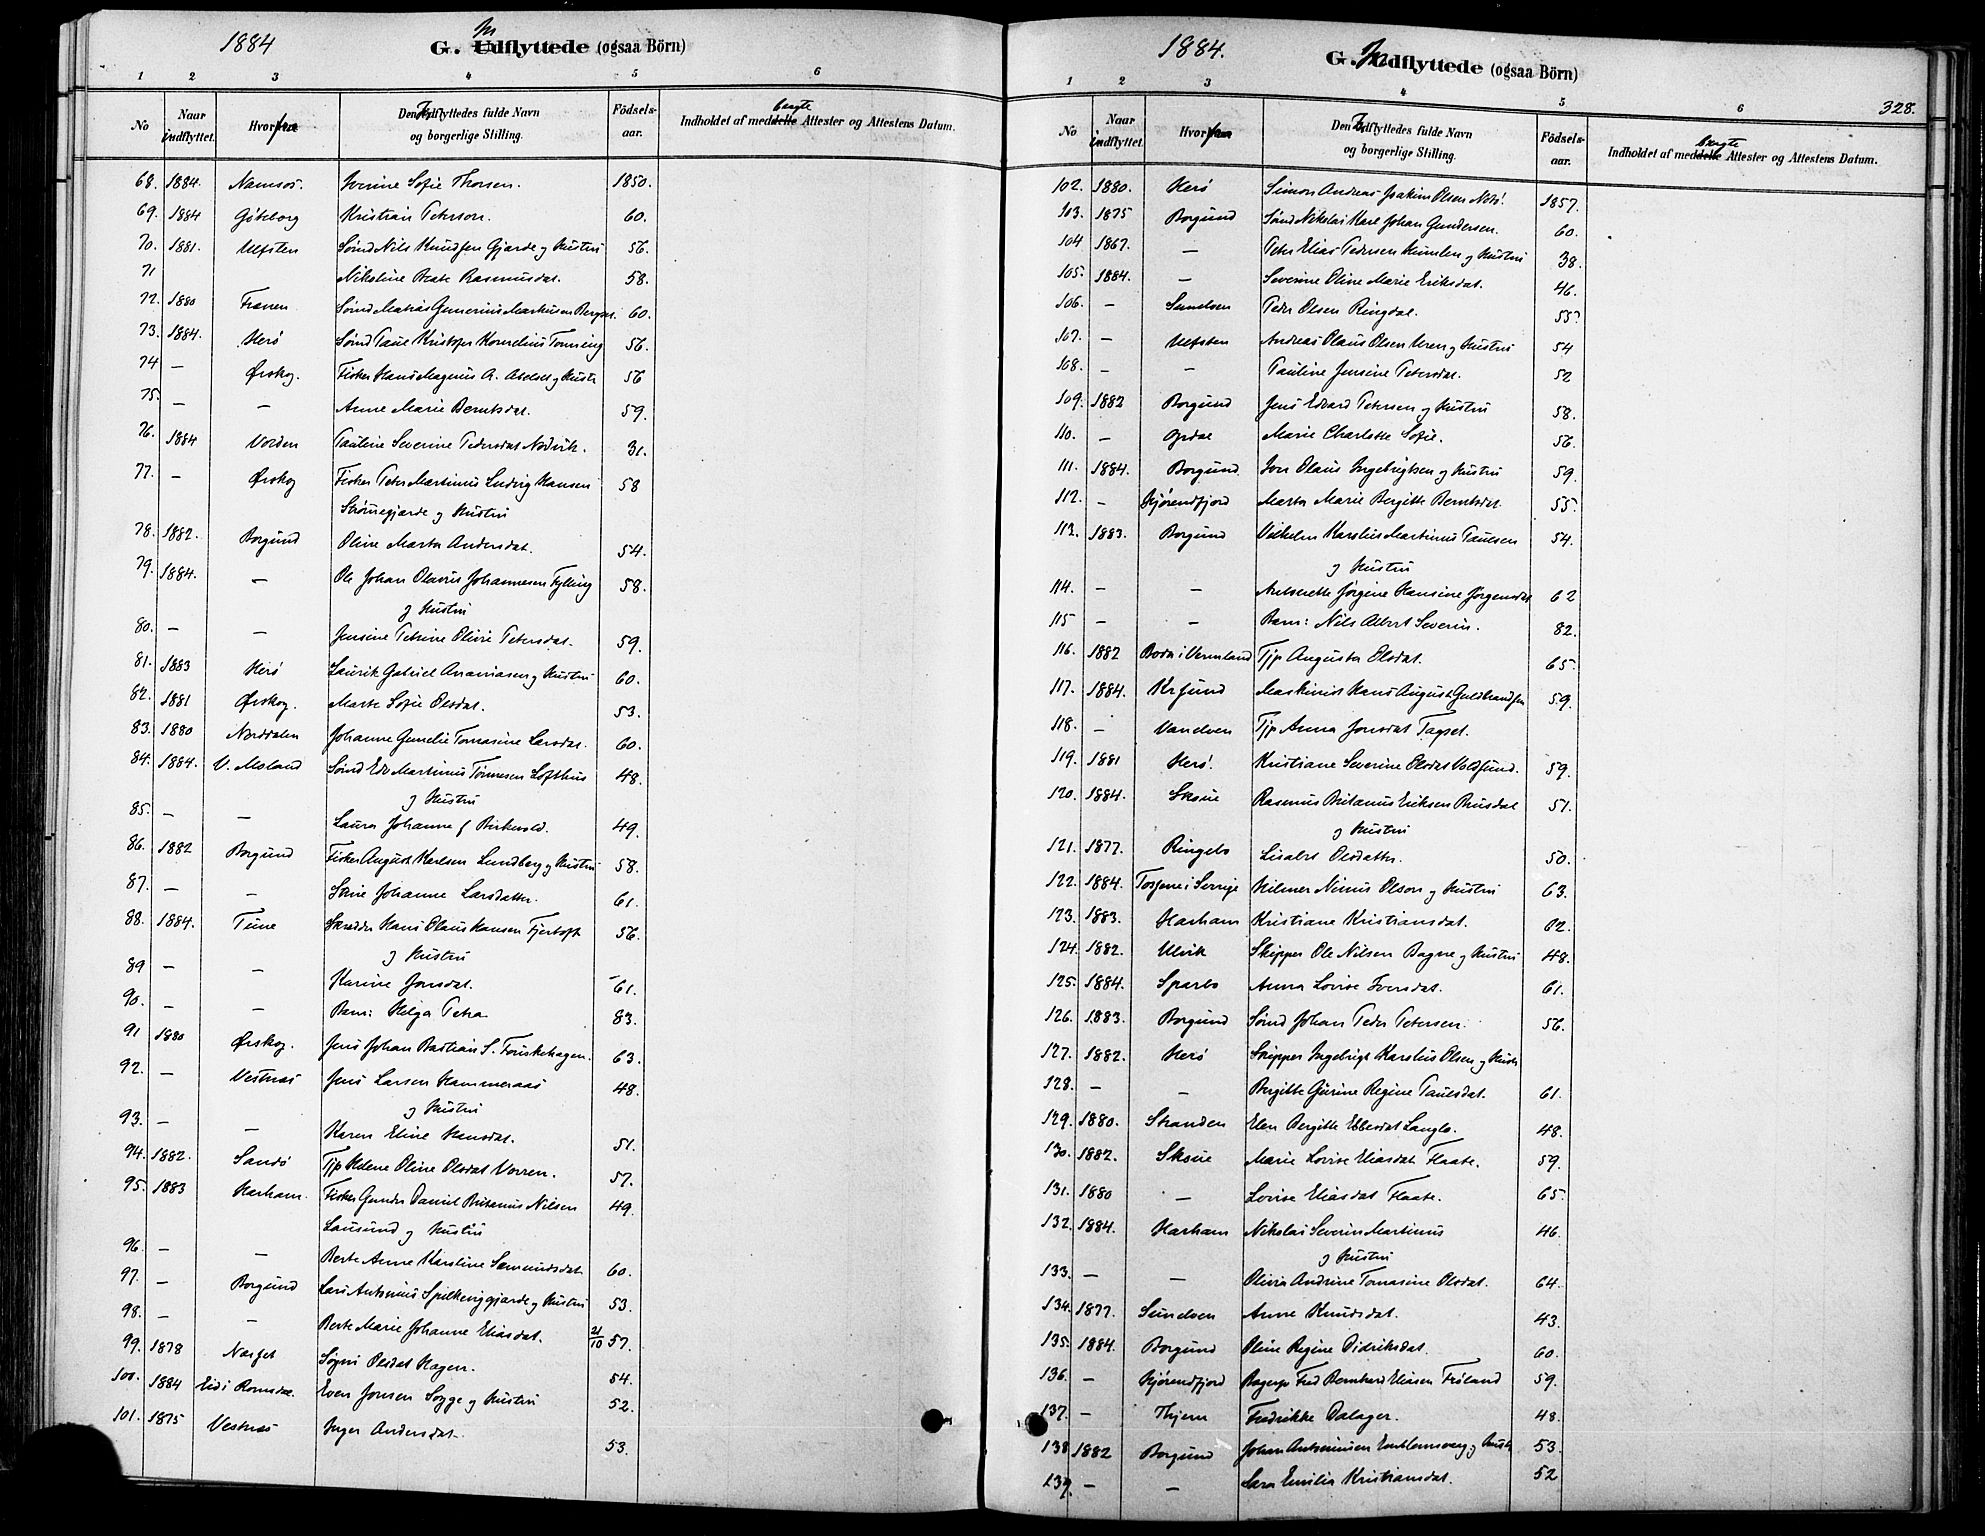 1884
In
G. Udflyttede (ogsaa Börn)
1 2 3 4 5 6
No Naar indflyttet. Hvorfra Den Indflyttedes fulde Navn og borgerlige Stilling. Födsels-aar. Indholdet af medbragte Attester og Attestens Datum.
68. 1884. Namsos. Iverine Sofie Thorsen. 1850.
69. 1884 Göteborg Kristian Peterson. 60.
70. 1881. Ulfsten Sömd Nils Knudsen Gjærde og Hustru 56.
71 Nikoline Beate Rasmusdat. 58.
72. 1880 Frænen Sömd Matias Gunerius Markussen 60.
73. 1884. Herö Sömd Paul Kristofer Kornelius Tonning 56.
74 — Ørskog. Fisker Hans Magnus A. Abelset og Hustr 56
75. — — Anne Marie Berntsdat. 59.
76. 1884 Volden Pauline Severine Pedersdat Nedvik. 31.
77. — Ørskog Fisker Peter Martinus Ludvig Hansen 58
Strömegjærde og Hustru
78. 1882. Borgund Oline Marta Andersdat. 54.
79. 1884. — Ole Johan Olavus Johannesen Fylling 58.
og Hustru
80. — — Jensine Petrine Olivie Petersdat. 59.
81. 1883 Herö Laurik Gabriel Ananiasen og Hustru 60.
82. 1881 Ørskog. Marte Sofie Olsdat. 53.
83. 1880 Norddalen Johanne Gunelie Tomasine Larsdat. 60.
84. 1884. V. Moland Sömd Edv Martinius Tönnesen Lofthus 48.
og Hustru
85. — — Laura Johanne f Birkevold. 49.
86. 1882 Borgund Fisker August Karlsen Lundberg og Hustru 58.
87. — — Stine Johanne Larsdatter. 61.
88. 1884. Tune Skrædder Hans Olaus Hansen Fjertoft 56.
og Hustru
89 — — Karine Jonsdat. 61.
90. — — Barn: Helga Petra 83.
91 1880 Ørskog. Jens Johan Bastian S. Fauskehagen. 63.
92. — Vestnæs Jens Larsen Hammeraas 48.
og Hustru
93. — — Karen Eline Hansdat. 51.
94. 1882. Sandö Tjp Helene Oline Olsdat Vorren. 57.
95. 1883 Harham. Fisker Gunder Daniel Britanus Nilsen 49.
Lausund og Hustru
96. — — Berte Anne Karoline Samundsdat 60.
97. — Borgund Lars Antonius Spilkeviggjærde og Hustru 53.
98. — — Berte Marie Johanne Eliasdat. 21/10 57.
99. 1878 Næsset Signi Olsdat Hagen. 54.
100. 1884 Eid i Romsdal Even Jonsen Sogge og Hustru 52.
101. 1875 Vestnæs Inger Andersdat. 53.
1884.
In
G. Udflyttede (ogsaa Börn)
328.
1 2 3 4 5 6
No Naar indflyttet. Hvorfra Den Indflyttedes fulde Navn og borgerlige Stilling. Födsels-aar. Indholdet af medbragte Attester og Attestens Datum.
102. 1880. Herö Simon Andreas Joakim Olsen 1857.
103. 1875 Borgund Sömd Nikolai Karl Johan Gundersen. 60.
104 1867. — Peter Elias Pedersen Humlen og Hustru 38.
105. 1884. — Severine Oline Marie Eriksdat. 46.
106. — Sunelven Peder Olsen Ringdal. 55?
107. — Ulfsten Andreas Olaus Olsen Uren og Hustru 54
108. — — Pauline Jensine Petersdat. 52
109. 1882 Borgund Jens Edvard Petersen og Hustru 58.
110. — Opdal Marie Charlotte Sofie. 56.
111. 1884. Borgund. Iver Olaus Ingebrigtsen og Hustru 59.
112. — Hjörendfjord Marta Marie Bergitte Berntsdat. 55.
113. 1883. Borgund Vilhelm Karolius Martinus Paulsen 54.
og Hustru
114. — — Nilsinette Jörgine Hansine Jörgensdat 62
115 — — Barn: Nils Albert Severin. 82.
116. 1882 Boda i Vermland Tjp Augusta Olsdat. 65.
117. 1884. Krsund Maskinist Hans August Guldbrandsen 59.
118. — Vanelven Tjp Anna Jonsdat Fagset.
119. 1881 Herö. Kristiane Severine Olsdat Voldsund. 59.
120. 1884. Skoue Rasmus Britanus Eriksen Brusdal 57.
og Hustru
121. 1877. Ringebo Lisabet Olsdatter. 50.
122. 1884. i Sverige Hilmer Olson og Hustru 63.
123. 1883. Harham Kristiane Kristiansdat. 62.
124. 1882. Ulvik Skipper Ole Nilsen Bagne og Hustru 48.
125. 1884. Sparbo Anna Lovise Iversdat. 61.
126. 1883. Borgund Sömd Johan Peder Petersen. 56.
127. 1882. Herö Skipper Ingebrigt Karolius Olsen og Hustr
128. — — Bergitte Gurine Regine Paulsdat. 61.
129. 1880. Stranden Elen Bergitte Ebbesdat Langlo. 48.
130. 1882. Skoue Marie Lovise Eliasdat Flaate. 59.
131. 1880 — Lovise Eliasdat Flaate. 65.
132. 1884. Harham Nikolai Severin Martinus 46.
og Hustru
133. — — Olivia Andrine Tomasine Olsdat. 64.
134. 1877. Sunelven Anne Knudsdat. 43.
135. 1884. Borgund Oline Regine Didriksdat. 60.
136. — Hjörendfjord Bagersv Fred Bernhard Eliasen Fröland 59.
137. — Thjem Fredrikke Dalager. 48.
138 1882 Borgund Johan Antoniusen Emblemsvaag og Hustr 53.
139. — — Sara Emilia Kristiansdat. 52